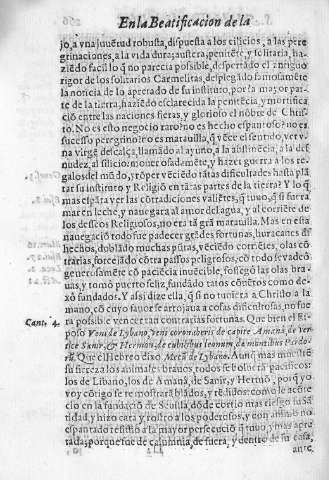 En la Beatificacion de la
jo, a vna juuētud robusta, dispuesta a los cilicios, a las pere
grinaciones, a la vida dura, austera, penitēte, y solitaria, ha-
ziēdo facil lo q̄ no parecia possible, despertādo el antiguo
rigor de los solitarios Carmelitas, desplegādo famosamēte
la noticia de lo apretado de su instituto, por la mayor par-
te de la tierra, haziēdo esclarecida la penitēcia, y mortifica
ciō entre las naciones fieras, y glorioso el nōbre de Chris-
to. No es esto negocio raro? no es hecho espantoso? no es
sucesso peregrino? no es marauilla, q̄ vēce el sentido, ver v
na virgē descalça, llamādo al ayuno, a la abstinēcia, a la des
nudez, al silicio: mouer osadamēte, y hazer guerra a los re
galos del mūdo, y rōper vēciēdo tātas dificultades hasta plā
tar su instituto y Religiō en tātas partes de la tierra? Y lo q̄
mas espāta ver las cōtradiciones valiētes, q̄ tuuo, q̄ si fuera
mar en leche, y nauegara al amor del agua, y al corriēte de
los desseos Religiosos, no era tā grā marauilla. Mas en esta
nauegaciō todo fue padecer grādes fortunas, huracanes di
hechos, doblādo muchas pūtas, vēciēdo corriētes, olas cō
trarias, forcejādo cōtra passos peligrosos, cō todo se vadeō
generosamēte cō paciēcia inuēcible, sossegò las olas bra-
uas, y tomò puerto feliz, fundādo tātos cōuētos como de-
xò fundados. Y assi dize ella, q̄ si no tuuiera a Christo a la
mano, cō cuyo fauor se arrojaua a cosas dificultosas, no fue
ra possible vencer tan contrarias fortunas. Que bien el Es-
Cant. 4. poso Veni de Lybano, veni coronaberis de capite Amanà, de ver-
tice Sanir, & Hermon, de cubilibus leonum, de montibus Pardo
rū. Que el Hebreo dixo Mecū de Lybano. Aunq̄ mas muestrē
su fiereza los animales brauos, todos se bolverà pacificos:
los de Libano, los de Amanà, de Sanir, y Hermō, porq̄ yo
voy cōtigo se remostrarà blādos, y rēdidos: como le aconte
ciò en la fundaciō de Seuilla, dōde corriò mas riesgo su sā
tidad, y hizo cara y rostro a los poderosos, y con animo no
espantado resistiò a la mayor persecuciō q̄ tuuo, y mas apre
tada; porque fue de calumnia, de fuera, y dentro de su casa,